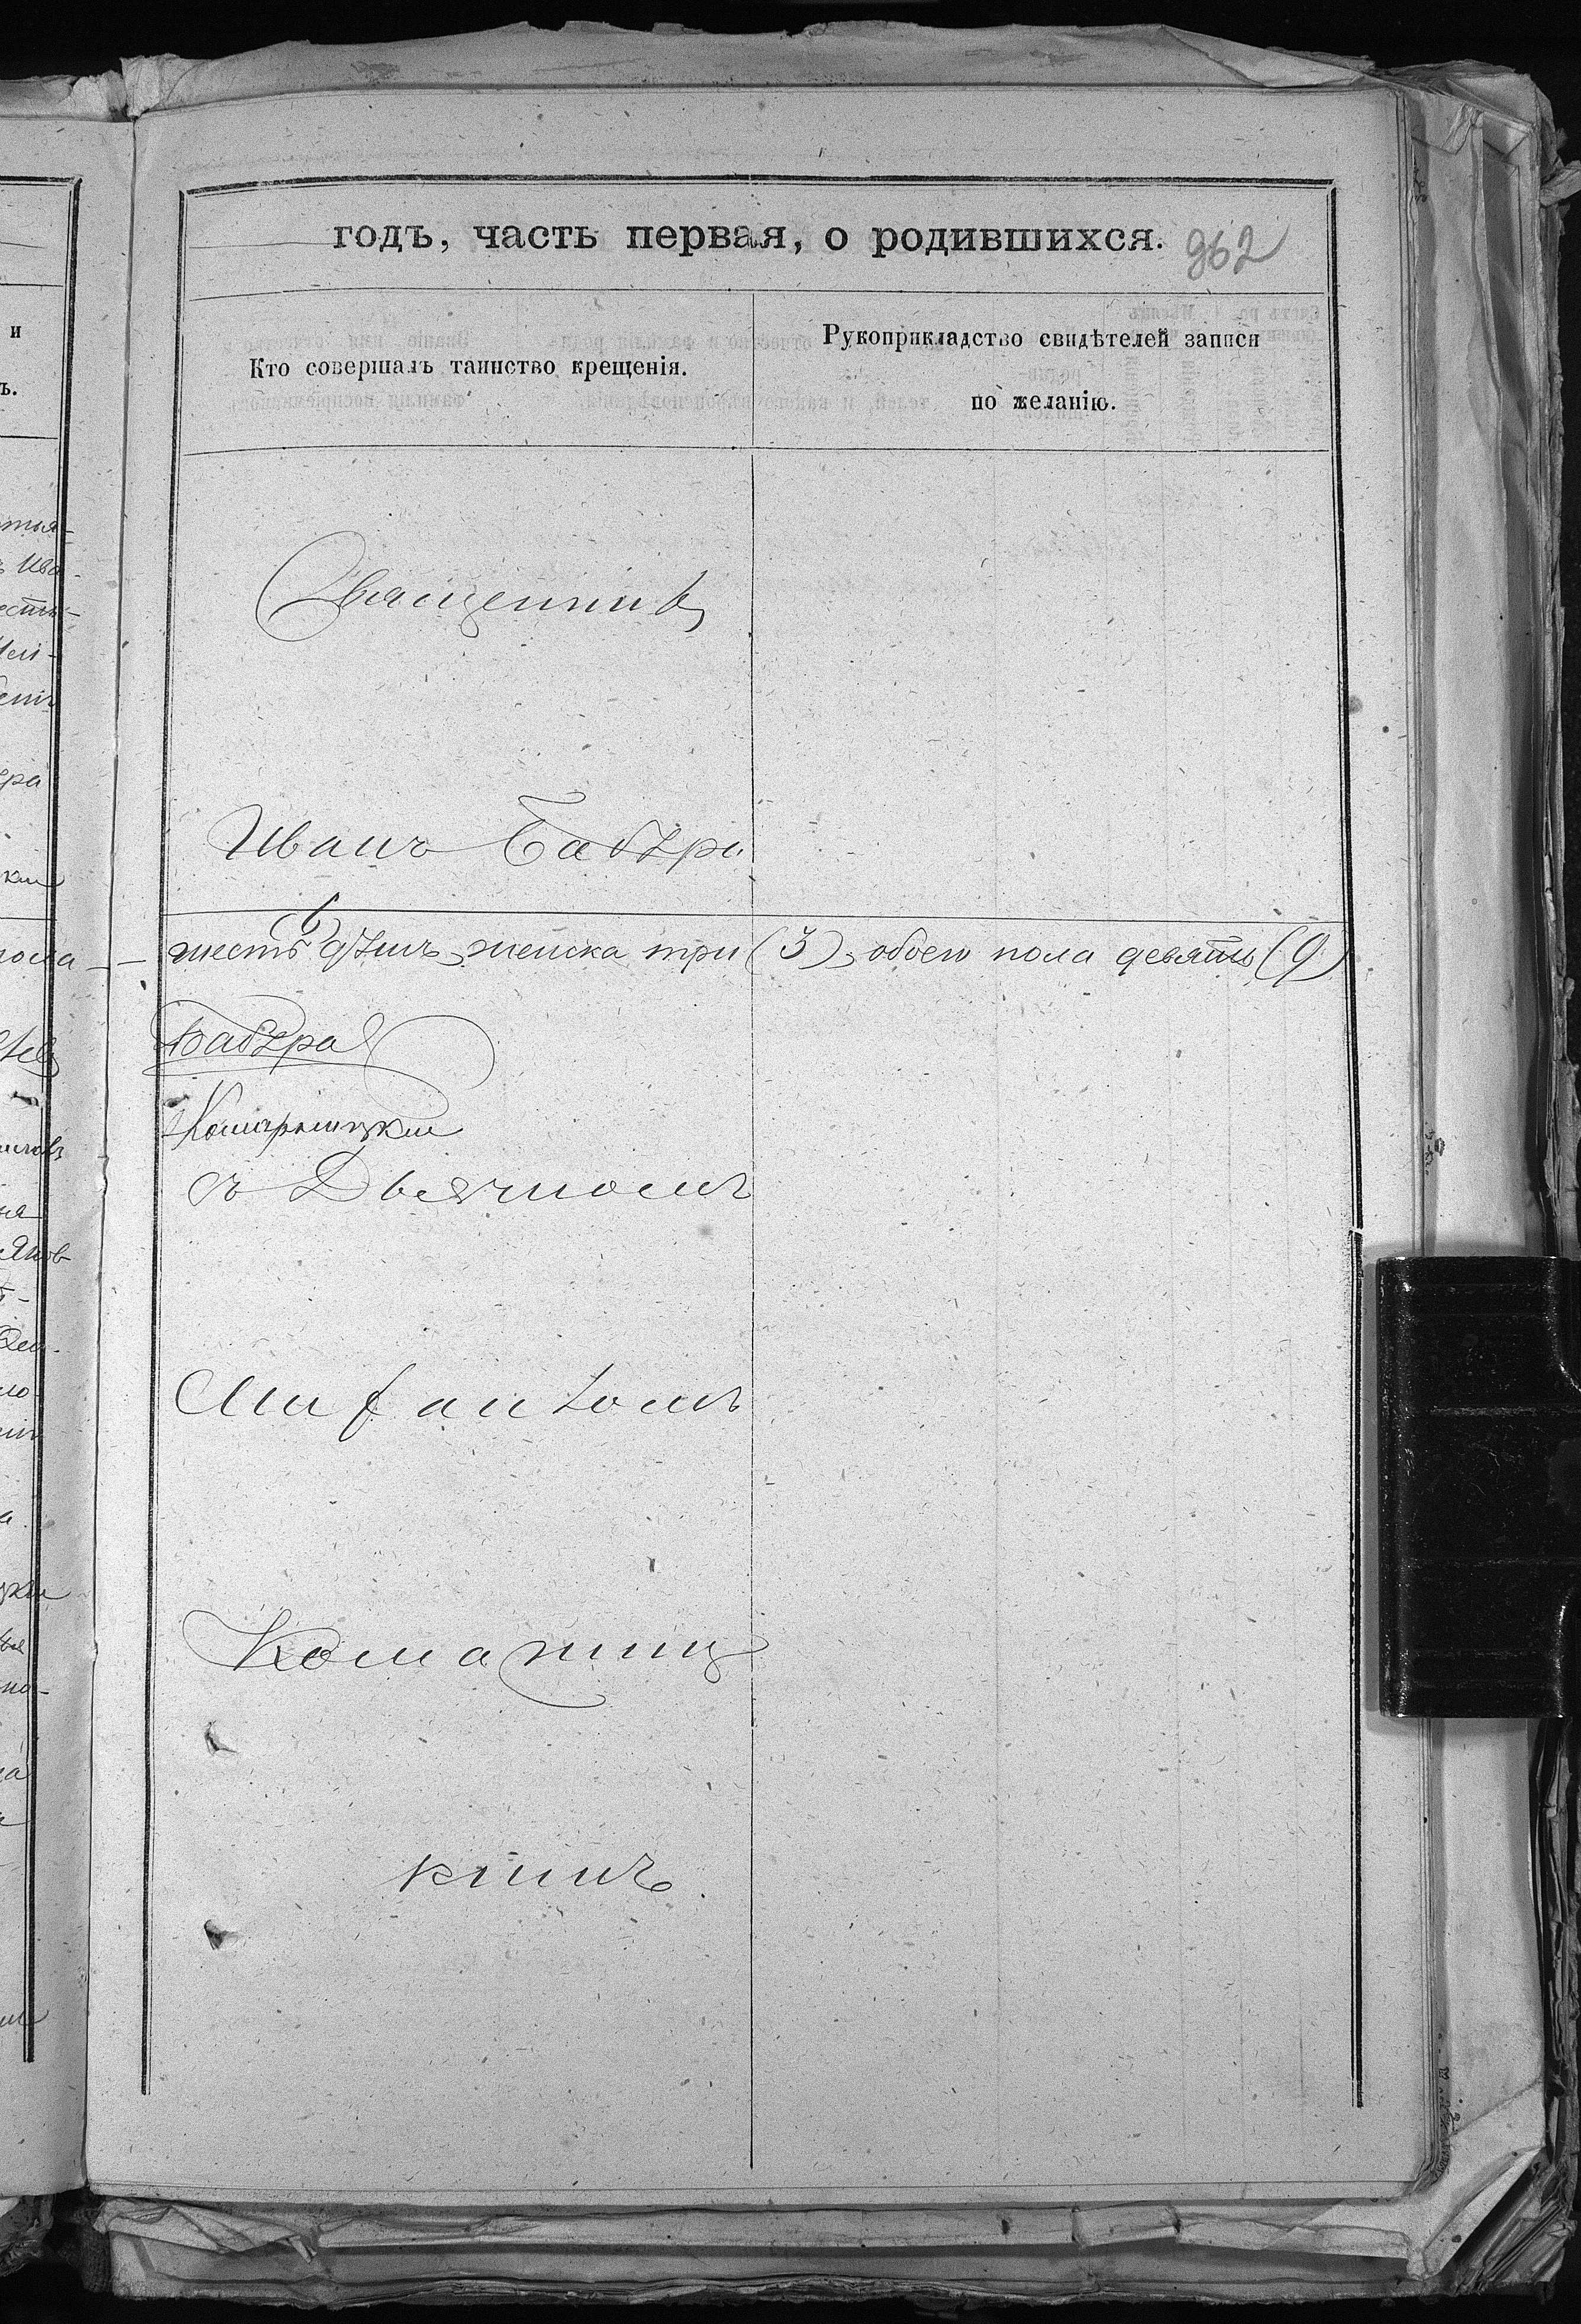 годъ, часть первая, о родившихся.
962
Кто совершалъ таинство крещенія.
Рукоприкладство свидѣтелей записи
по желанію.
Священникъ
Иванъ Бабура
шесть (6) душъ, женска три (3), обоего пола девять (9)
Бабура
Комарницкій
съ Дьячкомъ
Комарниц
кимъ.